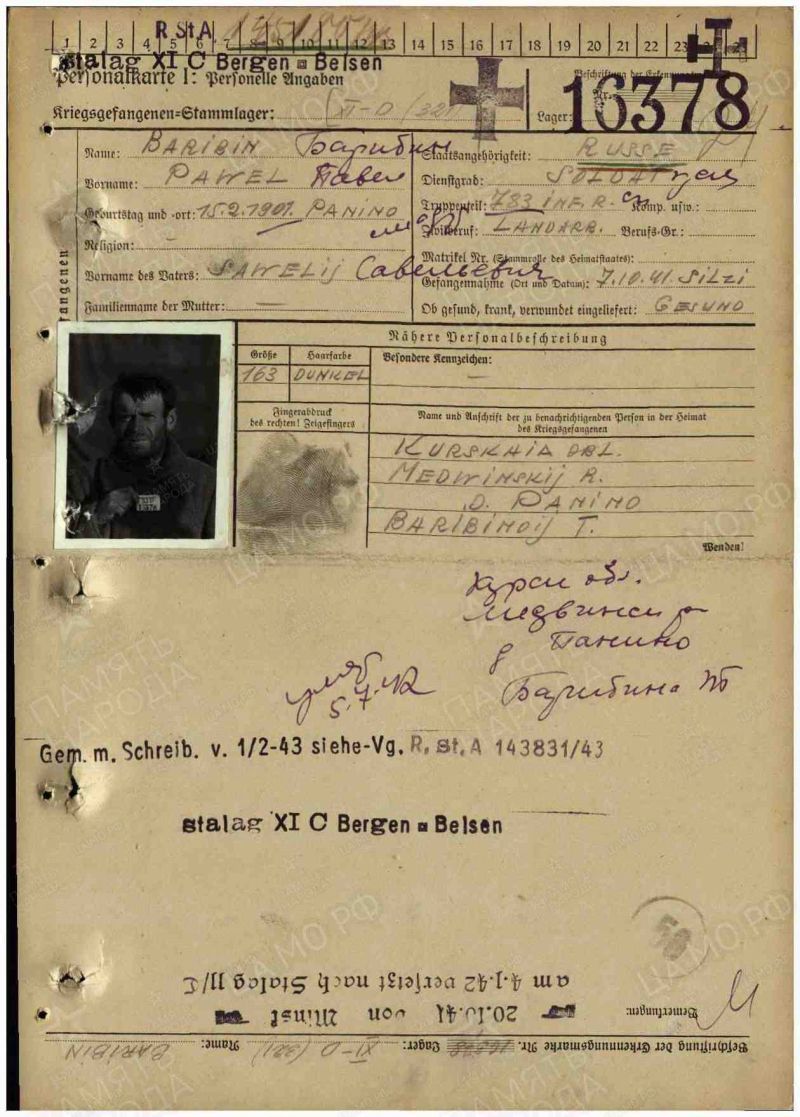 R. St. A.
1 2 3 4 5 6 7 8 9 10 11 12 13 14 15 16 17 18 19 20 21 22 23
stalag XI C Bergen-Belsen
Personalkarte I: Personelle Angaben
Beschriftung der Erkennungsmarke
Kriegsgefangenen-Stammlager: XI-D (321)
Nr. 16378
Lager:
Name: BARIBIN Барибин
Staatsangehörigkeit: RUSSE
Vorname: PAWEL Павел
Dienstgrad: SOLDAT
Geburtstag und -ort: 15.2.1901. PANINO
Truppenteil: 783 INF.R. Komp. usw.:
Zivilberuf: LANDARB. Berufs-Gr.:
Religion: —
Matrikel Nr. (Stammrolle des Heimatstaates):
Vorname des Vaters: SAWELIJ Савельевич
Gefangennahme (Ort und Datum): 7.10.41 SILZI
Familienname der Mutter: —
Ob gesund, krank, verwundet eingeliefert: GESUND
Nähere Personalbeschreibung
Größe Haarfarbe Besondere Kennzeichen:
163 DUNKEL —
Fingerabdruck
des rechten! Zeigefingers
Name und Anschrift der zu benachrichtigenden Person in der Heimat
des Kriegsgefangenen
KURSKAIA OBL.
MEDWINSKIJ R.
D. PANINO
BARIBINOIJ T.
Wenden!
Курск обл.
Медвинск р
д Панино
Барибина
5.7.42
Gem. m. Schreib. v. 1/2-43 siehe-Vg. R. St. A 143831/43
stalag XI C Bergen-Belsen
am 4.1.42 versetzt nach Stalag 11/C
20.10.41 von Minsk
Bemerkungen:
Beschriftung der Erkennungsmarke Nr. 16378 Lager: XI-D (321) Name: BARIBIN
ПАМЯТЬ НАРОДА
ЦА МО РФ